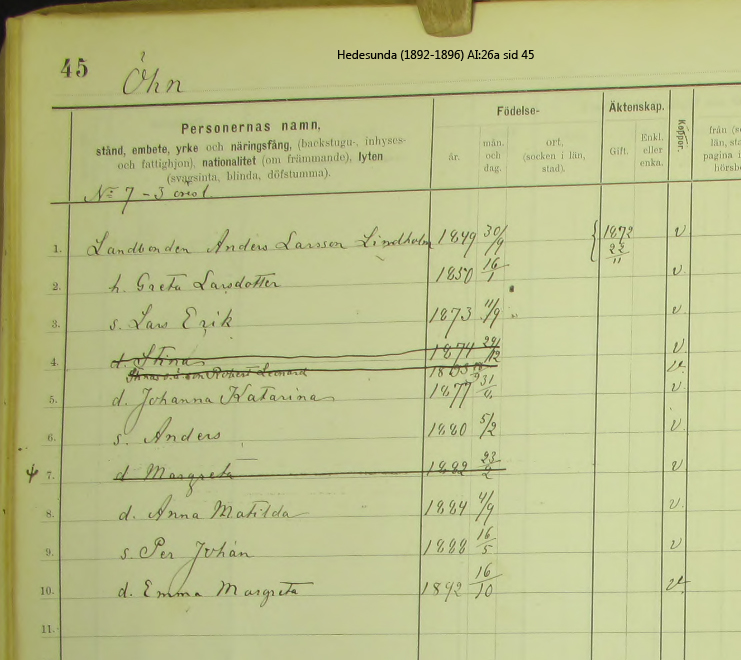 Hedesunda (1892-1896) AI:26a sid 45
45 Öhn
Personernas namn,
stånd, embete, yrke och näringsfång, (backstugu-, inhyses-
och fattighjon), nationalitet (om främmande), lyten
(svagsinta, blinda, döfstumma).
Födelse-
år.
mån. och dag.
ort, (socken i län, stad).
Äktenskap.
Gift.
Enkl. eller enka.
Koppor.
från (s
län, st
pagina i
hörsb
No 7 - 3
1. Landbonden Anders Larsson Lindholm 1849 30/9 1872 22/11 v
2. h. Greta Larsdotter 1850 16/1 v
3. s. Lars Erik 1873 11/9 v
4. d. Stina 1874 12 v
Stinas o.ä. son Robert Leonard v
5. d. Johanna Katarina 1877 31 v
6. s. Anders 1880 5/2 v
7. d. Margreta 1882 23/2 v
8. d. Anna Matilda 1884 4/9 v
9. s. Per Johan 1888 16/5 v
10. d. Emma Margreta 1892 16/10 v
11.